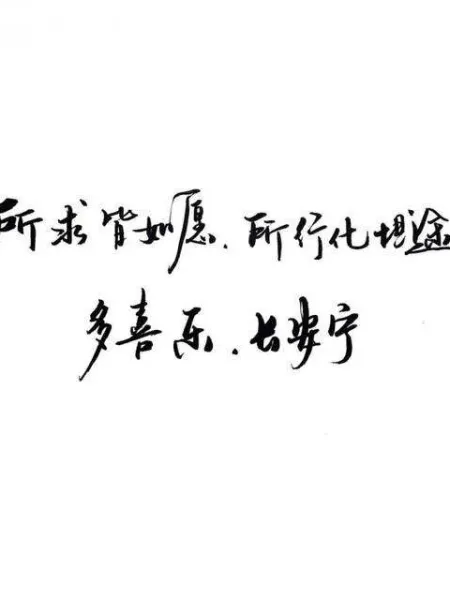 所求皆如愿.所行化坦途
多喜乐.长安宁